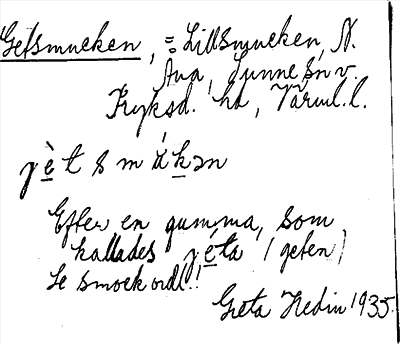 Getsmucken, = Lillsmucken, N.
Ana, Sunne sn v.
Fryksd. hd, Värml. l.
jè̱tsmuḵən
Efter en gumma, som
kallades jé̱ta (geten)
Se smockordl.!
Greta Hedin 1935.